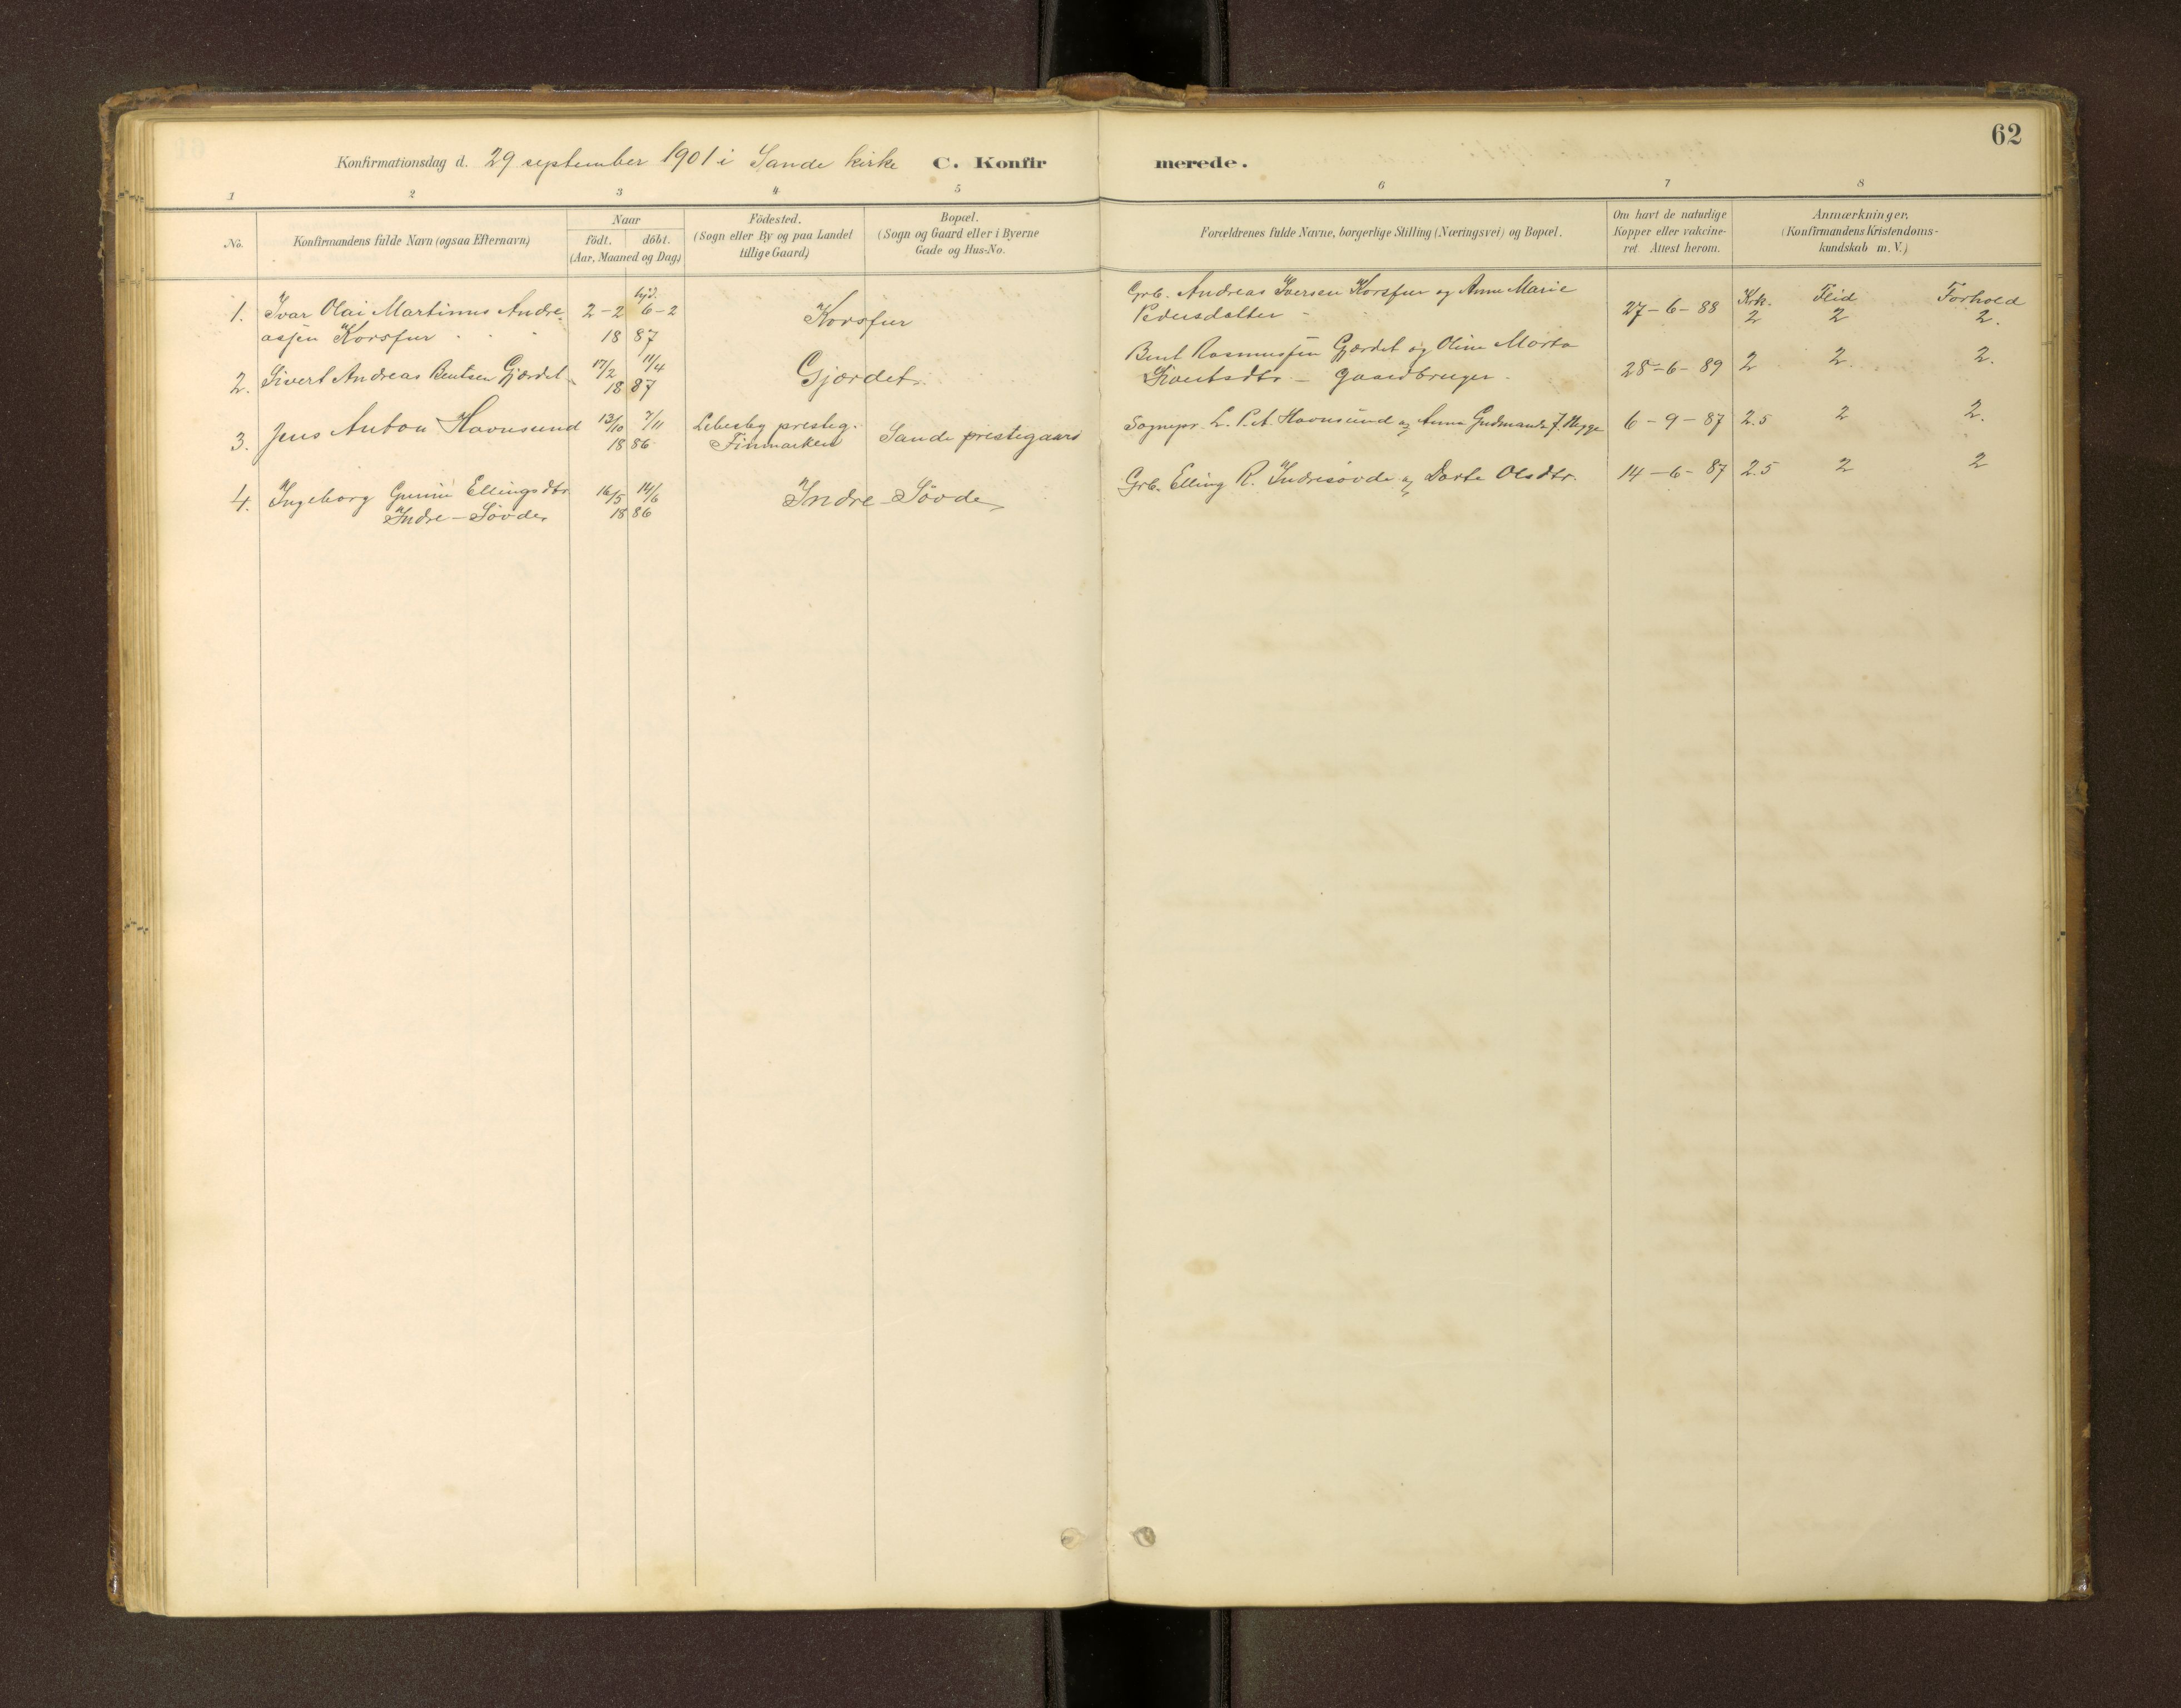 62
Konfirmationsdag d. 29 september 1901 i Sande kirke C. Konfirmerede.
1 2 3 4 5 6 7 8
No. Konfirmandens fulde Navn (ogsaa Efternavn)
Naar
födt. döbt.
(Aar, Maaned og Dag)
Födested.
(Sogn eller By og paa Landet
tillige Gaard)
Bopæl.
(Sogn og Gaard eller i Byerne
Gade og Hus-No.
Forældrenes fulde Navne, borgerlige Stilling (Næringsvei) og Bopæl.
Om havt de naturlige
Kopper eller vakcine-
ret. Attest herom.
Anmærkninger.
(Konfirmandens Kristendoms-
kundskab m. V.)
1. Ivar Olai Martinus Andre- 2-2 hjd. 6-2 Korsfur Grb. Andreas Iversen Korsfur og Anne Marie 27-6-88 Krk. Flid Forhold
assen Korsfur 18 87 Pedersdatter 2 2 2.
2. Sivert Andreas Bentsen Gjærdet 17/2 11/4 Gjærdet Bent Rasmussen Gjærdet og Oline Marta 28-6-89 2 2. 2.
18 87 Knutsdtr. - gaardbruger.
3. Jens Anton Havnsund 13/10 7/11 Lebesby presteg. Sande prestegaard Sognepr. L. P. A. Havnsund og Anna 6-9-87 2.5 2 2.
18 86 Finmarken
4. Ingeborg Gurine Ellingsdtr. 16/5 14/6 Indre-Sövde Grb. Elling R. Indresövde og Dorte Olsdtr. 14-6-87 2.5 2 2
Indre-Sövde 18 86